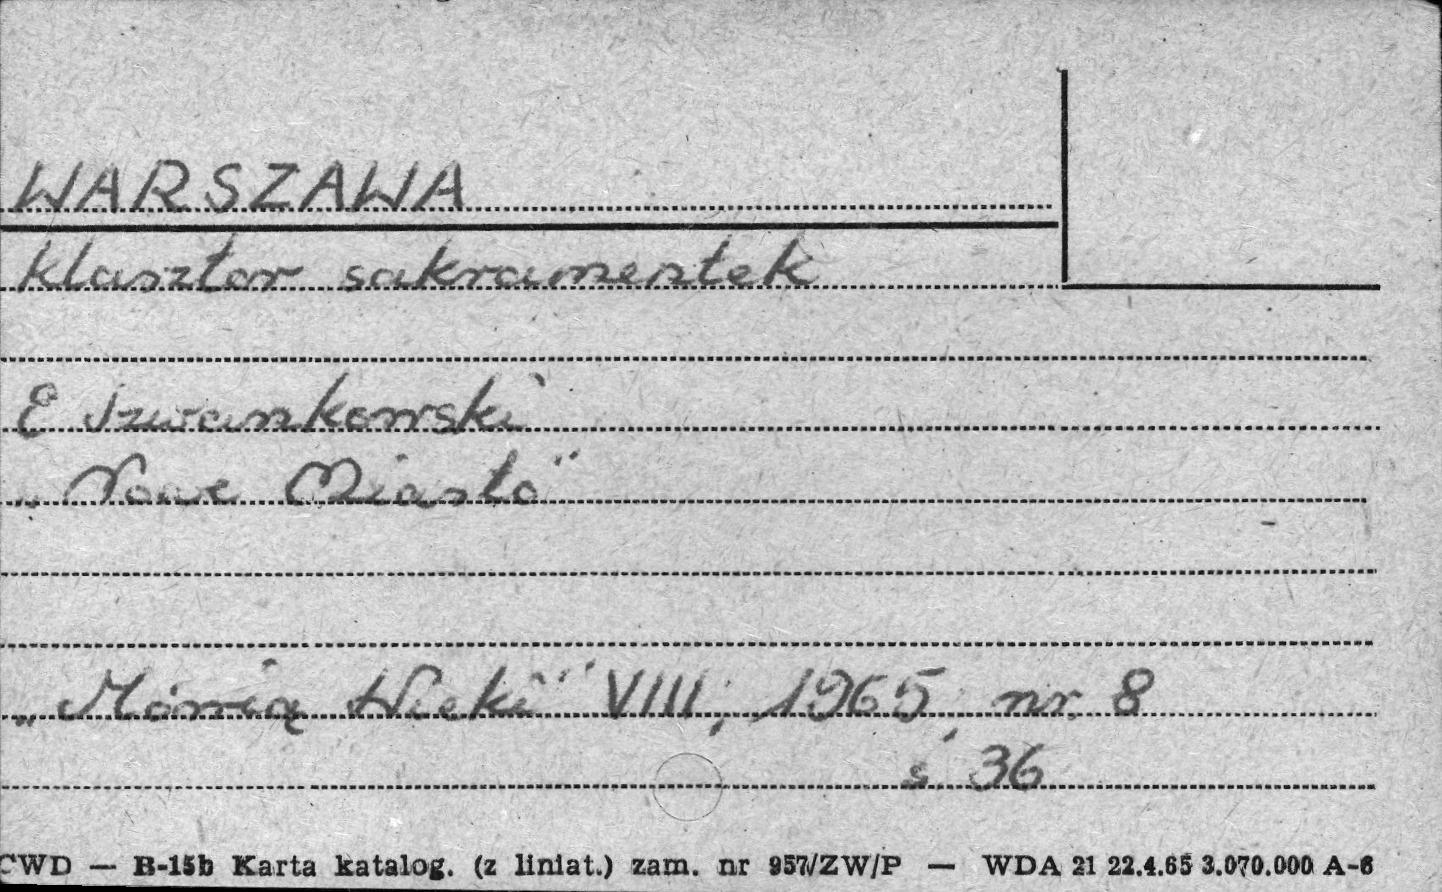 WARSZAWA
klasztor sakramentek
E Szwankowski
„Nowe Miasto"
„Mówią Wieki" VIII, 1965, nr 8
s. 36
CWD — B-15b Karta katalog. (z liniat.) zam. nr 957/ZW/P — WDA 21 22.4.65 3.070.000 A-6